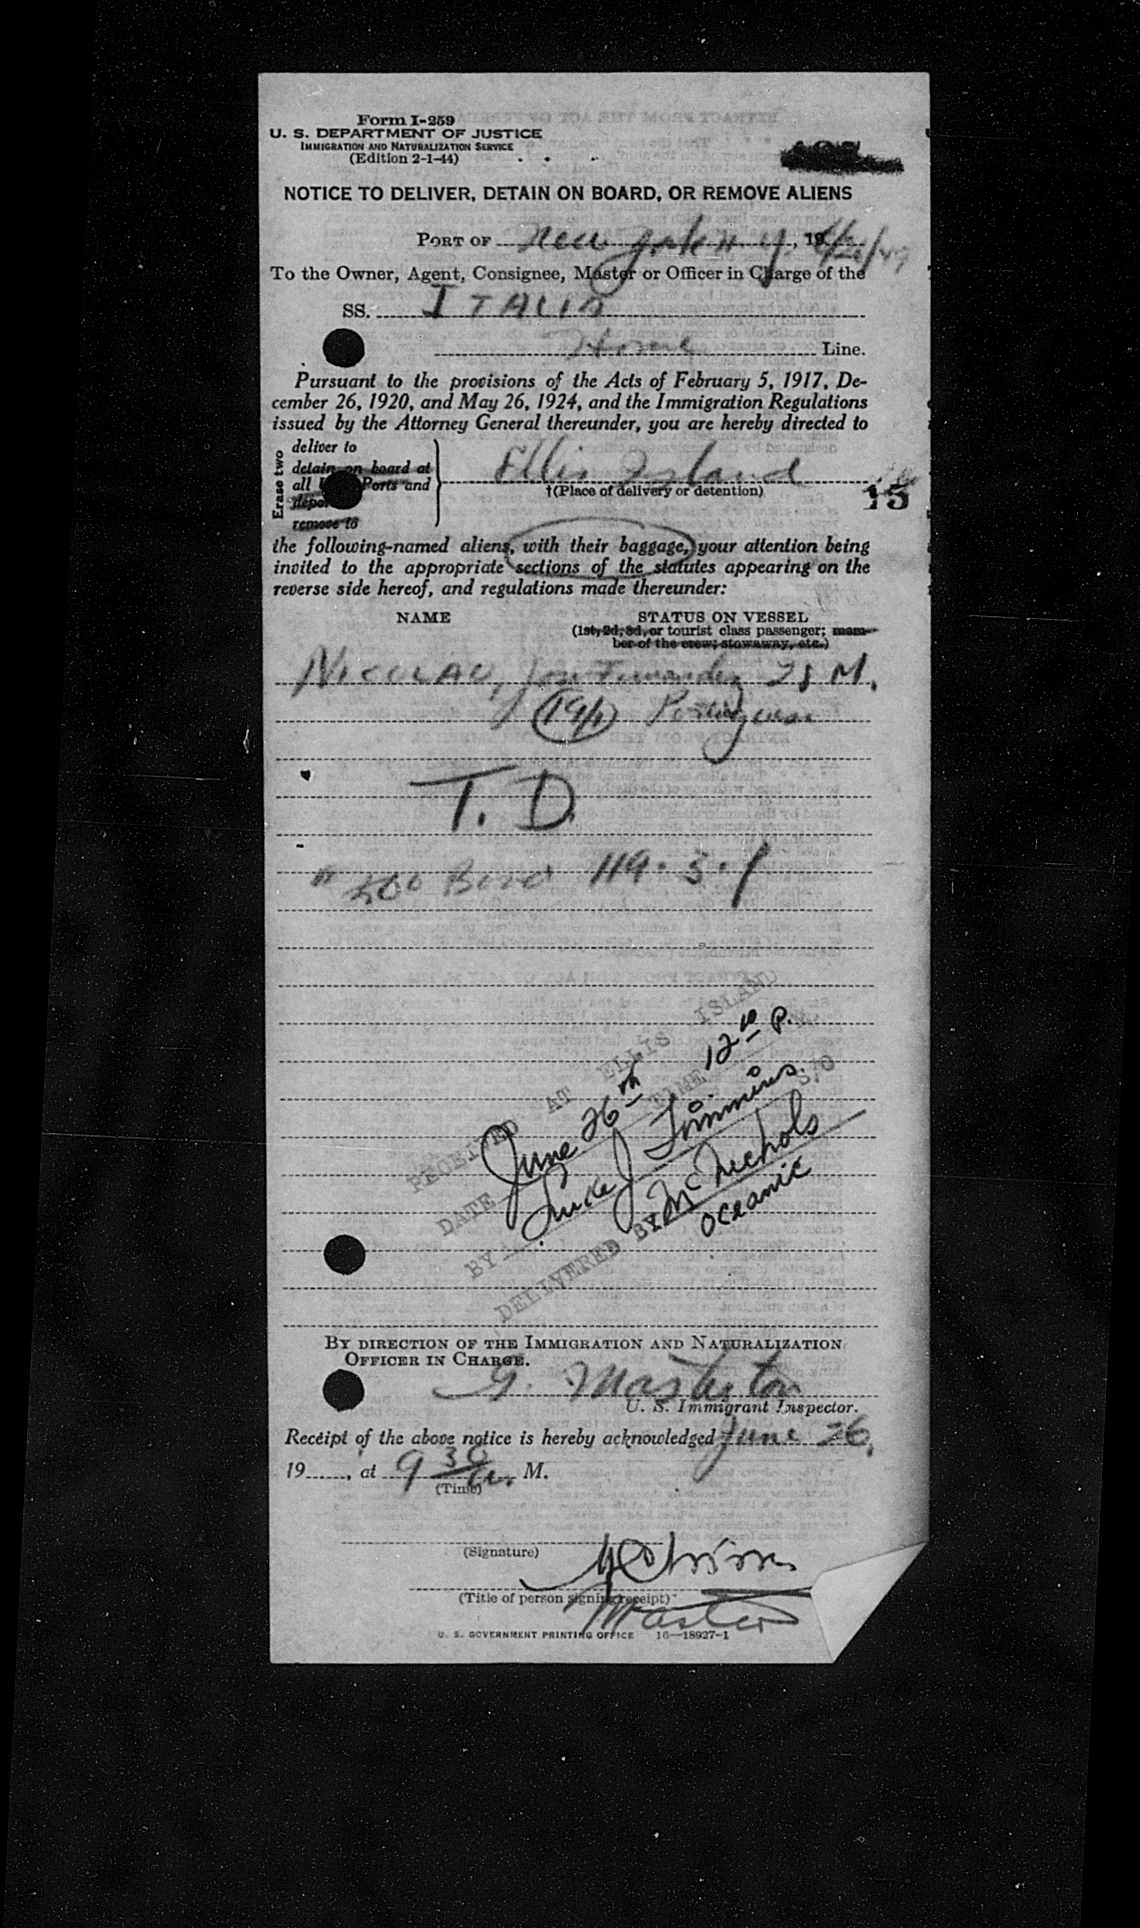 Form I-259
U. S. DEPARTMENT OF JUSTICE
IMMIGRATION AND NATURALIZATION SERVICE
(Edition 2-1-44)
NOTICE TO DELIVER, DETAIN ON BOARD, OR REMOVE ALIENS
PORT OF New York N Y., 19 6/26/49
To the Owner, Agent, Consignee, Master or Officer in Charge of the
SS. ITALIA
Home Line.
Pursuant to the provisions of the Acts of February 5, 1917, De-
cember 26, 1920, and May 26, 1924, and the Immigration Regulations
issued by the Attorney General thereunder, you are hereby directed to
Erase two
deliver to
detain on board at
all Ports and
remove to
Ellis Island
†(Place of delivery or detention)
15
the following-named aliens, with their baggage, your attention being
invited to the appropriate sections of the statutes appearing on the
reverse side hereof, and regulations made thereunder:
NAME STATUS ON VESSEL
(1st, 2d, 3d, or tourist class passenger; mem-
ber of the crew; stowaway, etc.)
NICOLAU, Jose Fernandez 28 M.
(19/1) Portuguese
T. D.
500 Bond 119.3.1
RECEIVED AT ELLIS ISLAND
DATE June 26th TIME 12 10 P. M.
BY Luke J Timmins S/O
DELIVERED BY McNichols
Oceanic
BY DIRECTION OF THE IMMIGRATION AND NATURALIZATION
OFFICER IN CHARGE.
G. Masterton
U. S. Immigrant Inspector.
Receipt of the above notice is hereby acknowledged June 26,
19 , at 9 30 a. M.
(Time)
(Signature)
(Title of person signing receipt)
Master
U. S. GOVERNMENT PRINTING OFFICE 16—18927-1